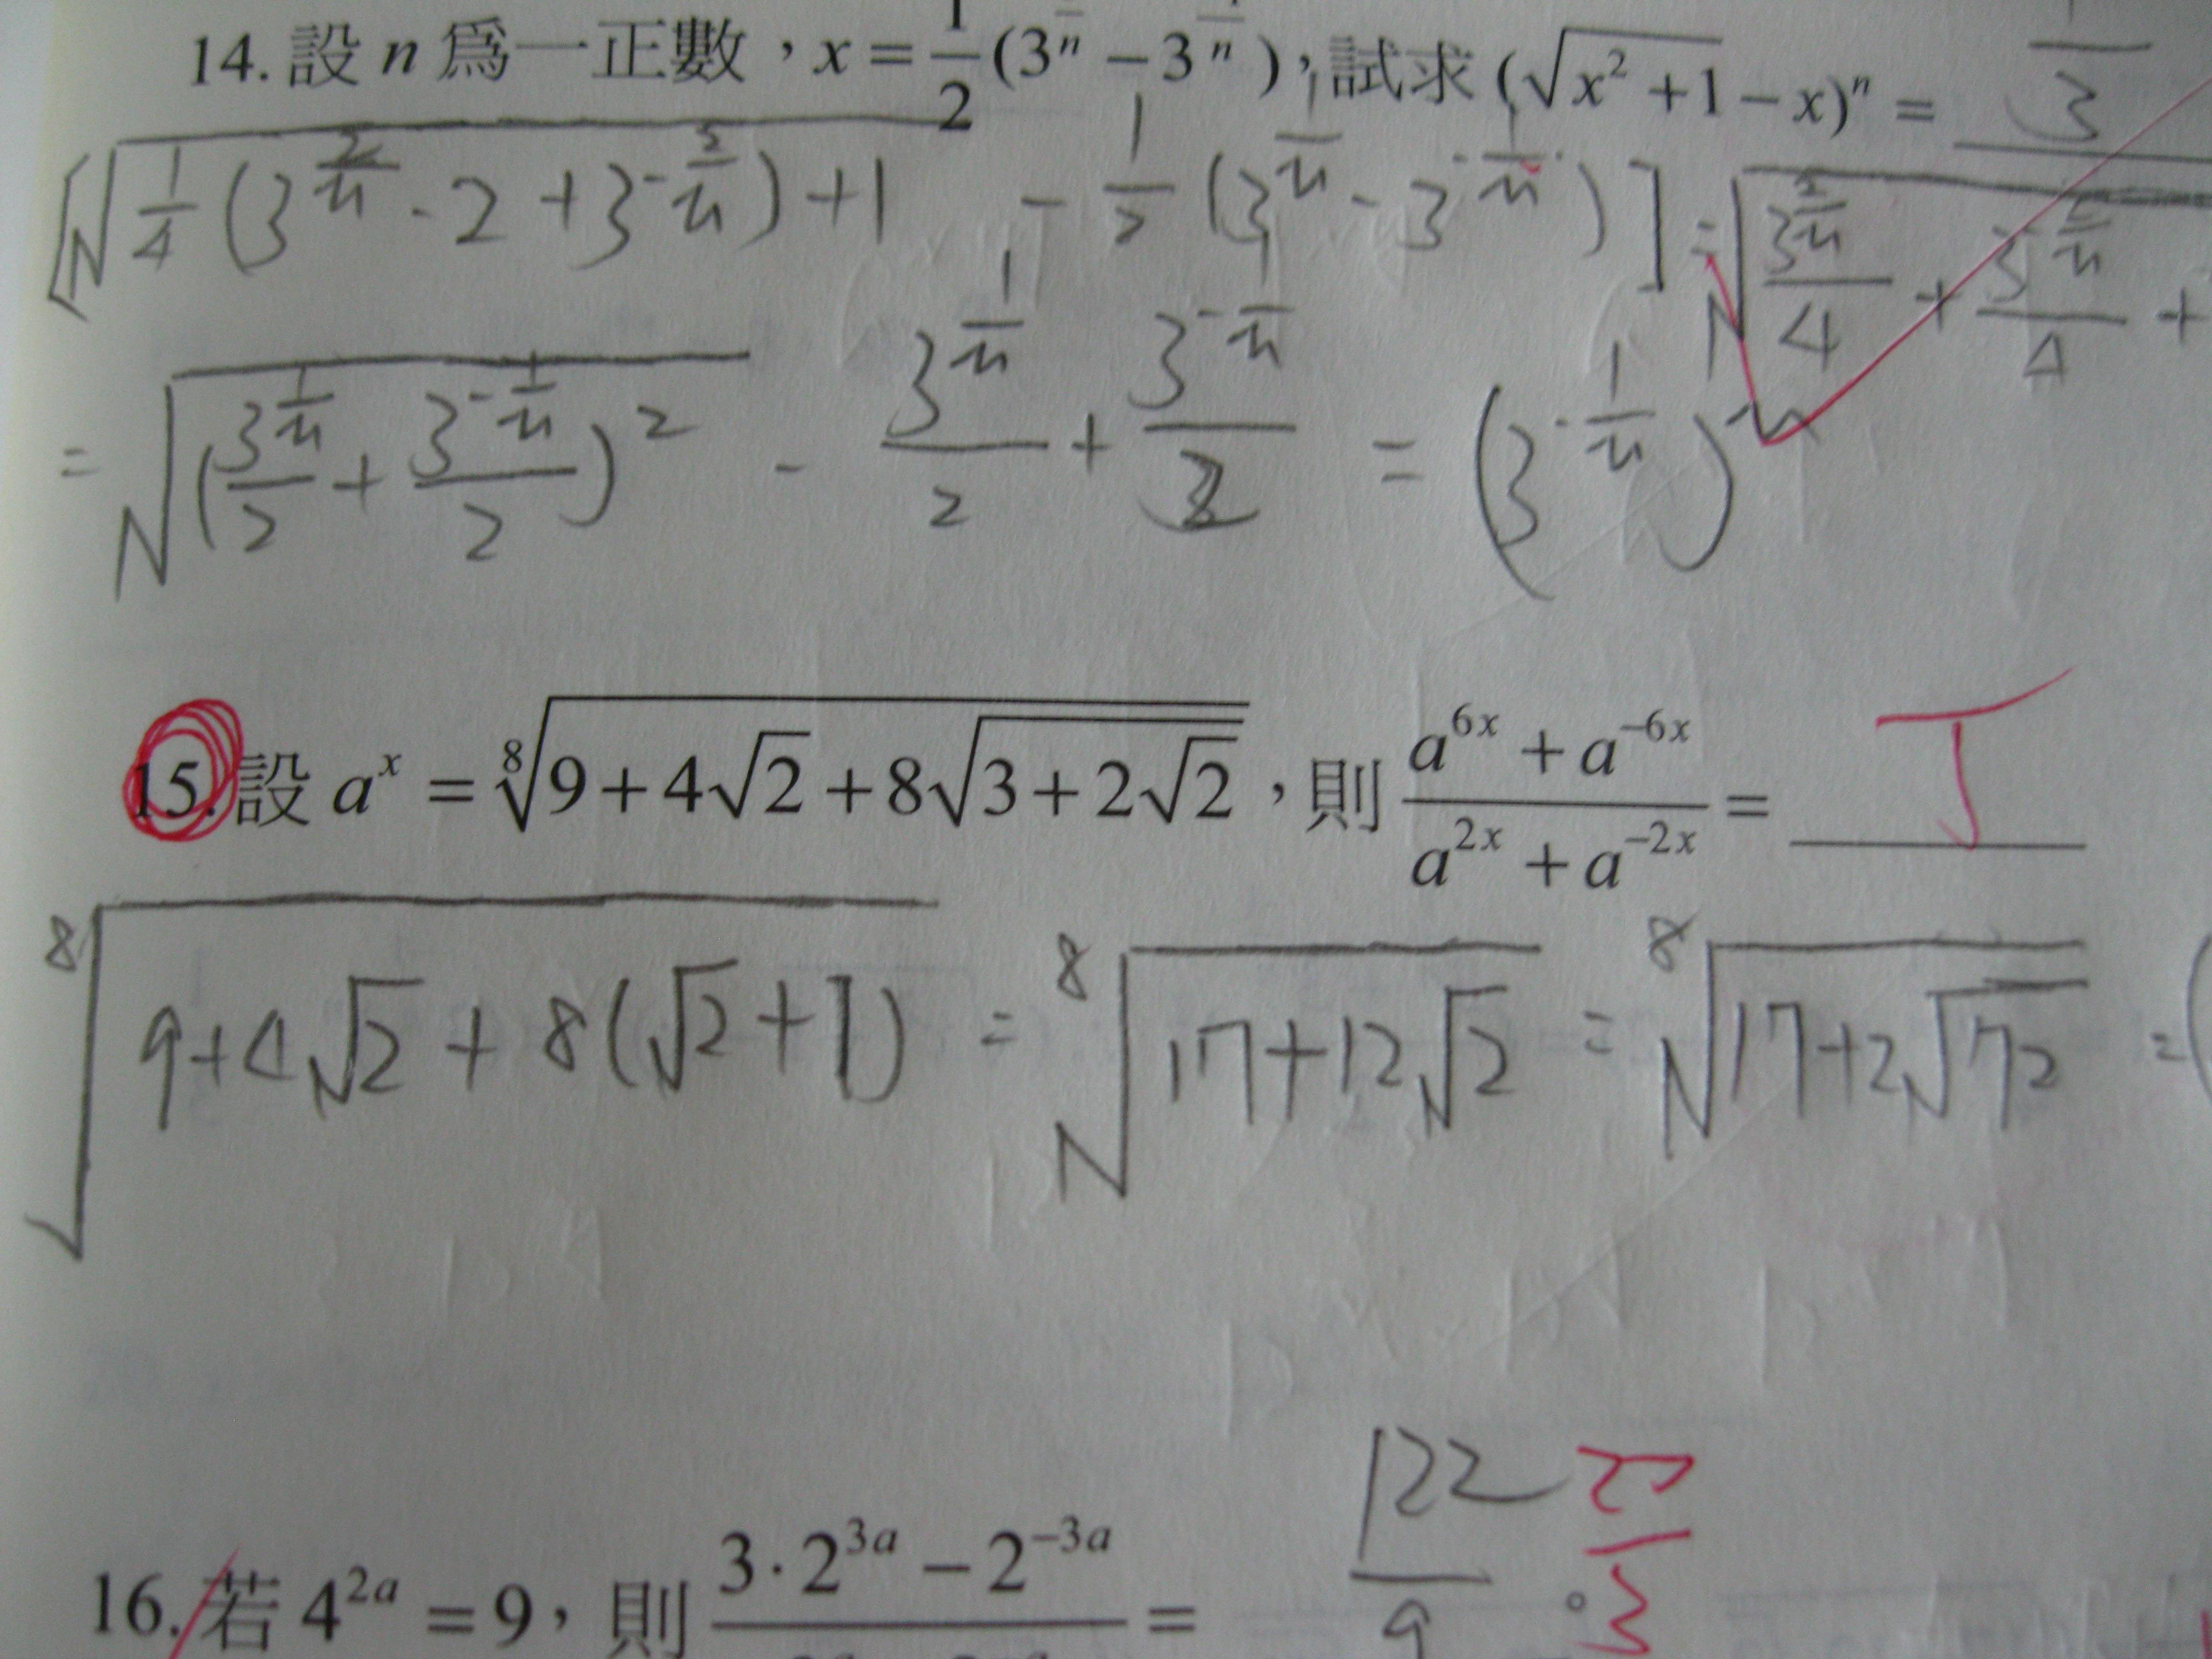 14. 設 n 為一正數，x = 1/2 (3^(1/n) − 3^(−1/n))，試求 (√(x² + 1) − x)ⁿ = 1/3
[√(1/4 (3^(2/n) - 2 + 3^(-2/n)) + 1) − 1/2 (3^(1/n) - 3^(-1/n))] = √(3^(2/n)/4 + 3^(-2/n)/4 +
= √((3^(1/n)/2 + 3^(-1/n)/2)²) - 3^(1/n)/2 + 3^(-1/n)/2 = (3^(-1/n))^n
15. 設 a^x = ⁸√(9 + 4√2 + 8√(3 + 2√2))，則 (a^(6x) + a^(−6x))/(a^(2x) + a^(−2x)) =
⁸√(9+4√2 + 8(√2+1)) = ⁸√(17+12√2) = ⁸√(17+2√72) = (
16. 若 4^(2a) = 9，則 (3·2^(3a) − 2^(−3a))/ = 122/9 。